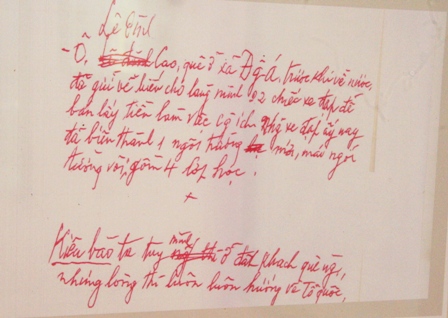 Lê Đình
- Ô. Cao, quê ở xã Đ.g.Á, trước khi về nước,
đã gửi về biếu cho làng mình 92 chiếc xe đạp để
bán lấy tiền làm việc có ích. Những xe đạp ấy nay
đã biến thành 1 ngôi trường mới, mái ngói
tường vôi, gồm 4 lớp học.
+
Kiều bào ta tuy mình ở đất khách quê người,
nhưng lòng thì luôn luôn hướng về Tổ quốc,